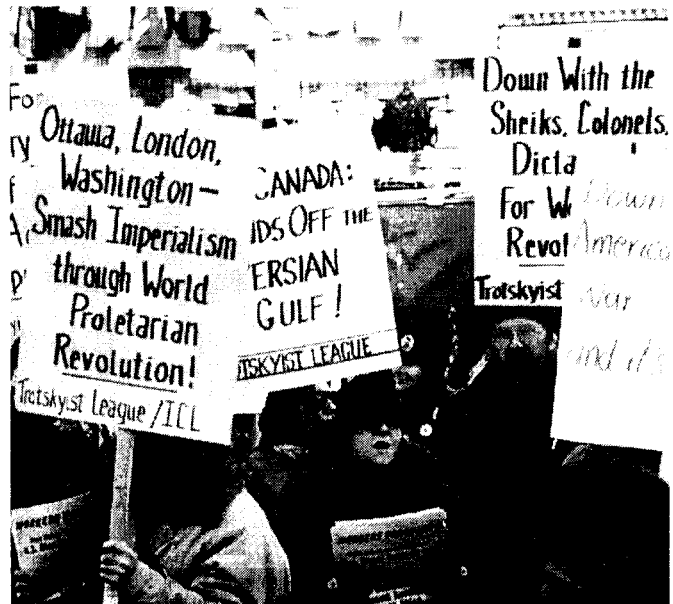 Ottawa, London,
Washington –
Smash Imperialism
through World
Proletarian
Revolution!
Trotskyist League / ICL
CANADA:
DS OFF THE
ERSIAN
GULF!
TSKYIST LEAGUE
Down With the
Sheiks, Colonels,
Dicta
For W
Revol
Trotskyist
Down
America
War
and it's
Fo
ry
f